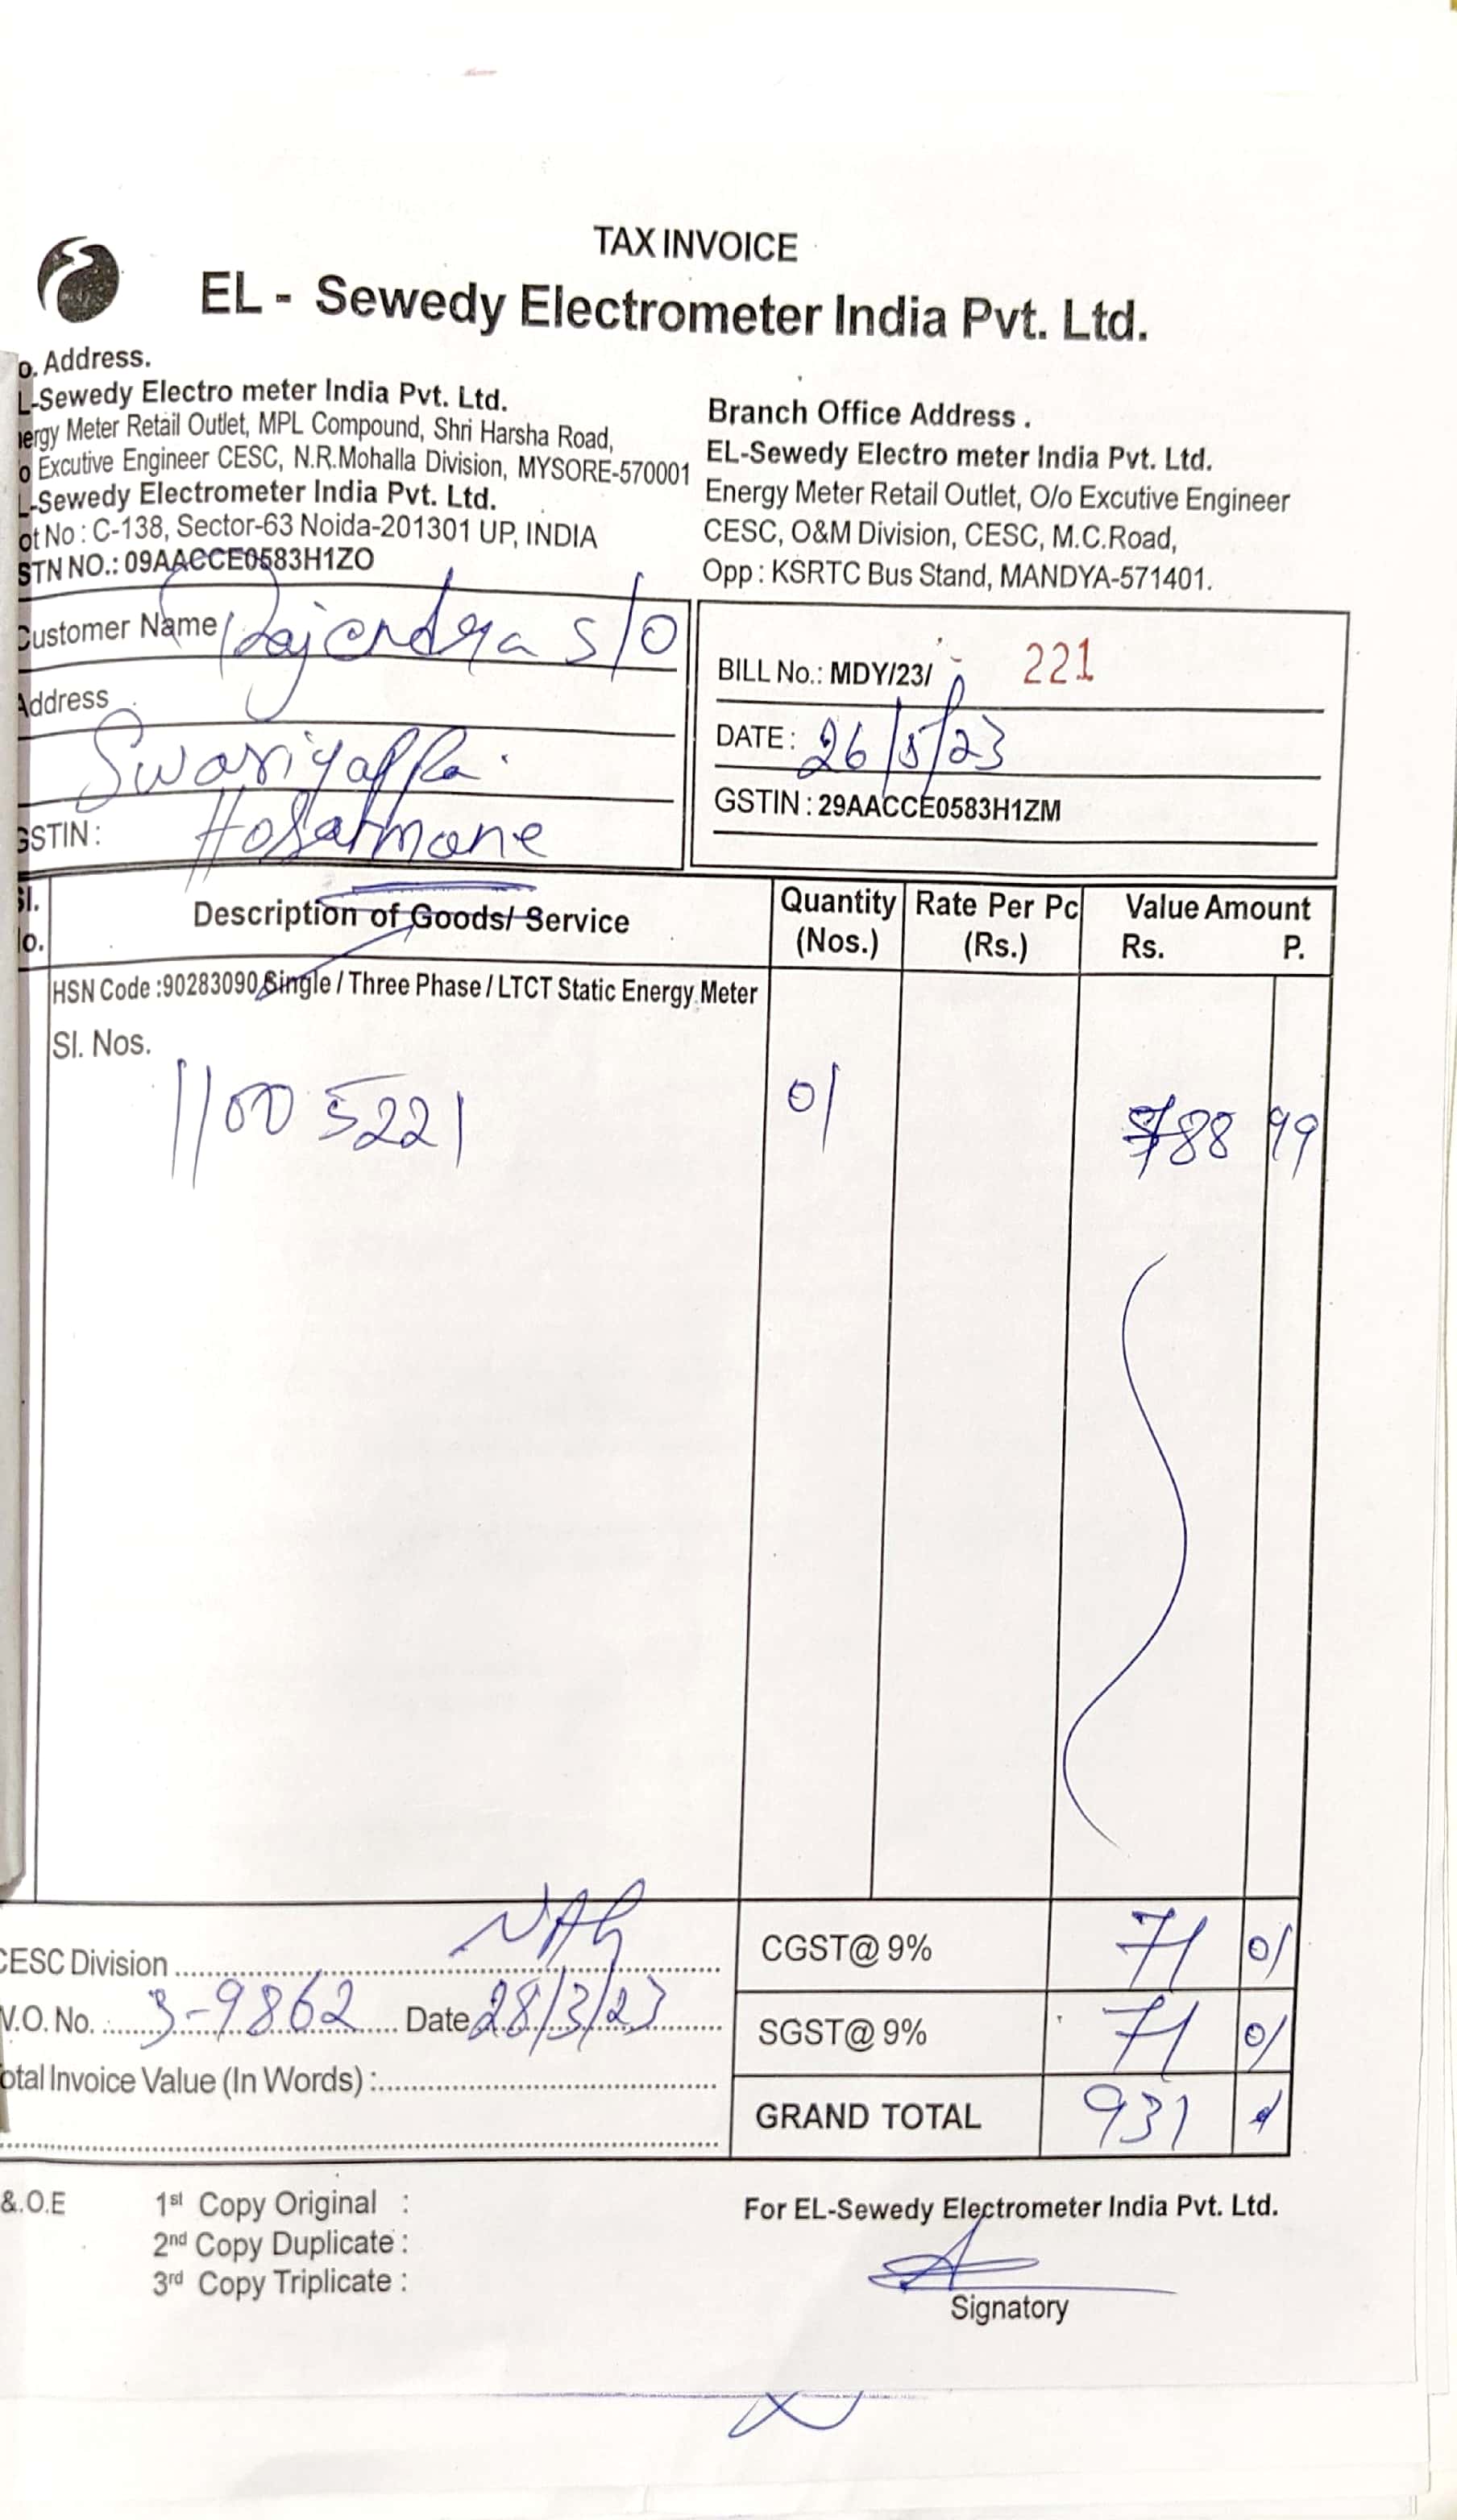 TAX INVOICE
EL - Sewedy Electrometer India Pvt. Ltd.
o. Address.
L-Sewedy Electro meter India Pvt. Ltd.
ergy Meter Retail Outlet, MPL Compound, Shri Harsha Road,
o Excutive Engineer CESC, N.R.Mohalla Division, MYSORE-570001
L-Sewedy Electrometer India Pvt. Ltd.
ot No : C-138, Sector-63 Noida-201301 UP, INDIA
STN NO.: 09AACCE0583H1ZO
Branch Office Address .
EL-Sewedy Electro meter India Pvt. Ltd.
Energy Meter Retail Outlet, O/o Excutive Engineer
CESC, O&M Division, CESC, M.C.Road,
Opp : KSRTC Bus Stand, MANDYA-571401.
Customer Name Rajendra S/O
Address
GSTIN :
BILL No.: MDY/23/ 221
DATE : 26/5/23
GSTIN : 29AACCE0583H1ZM
Sl. No. Description of Goods/ Service Quantity (Nos.) Rate Per Pc (Rs.) Value Amount Rs. P.
HSN Code :90283090 Single / Three Phase / LTCT Static Energy Meter
Sl. Nos.
11005221 01 788 99
CESC Division
CGST@ 9% 71 01
W.O. No. 3-9862 Date 28/3/23
SGST@ 9% 71 01
otal Invoice Value (In Words) :
GRAND TOTAL 931
&.O.E
1st Copy Original :
2nd Copy Duplicate :
3rd Copy Triplicate :
For EL-Sewedy Electrometer India Pvt. Ltd.
Signatory